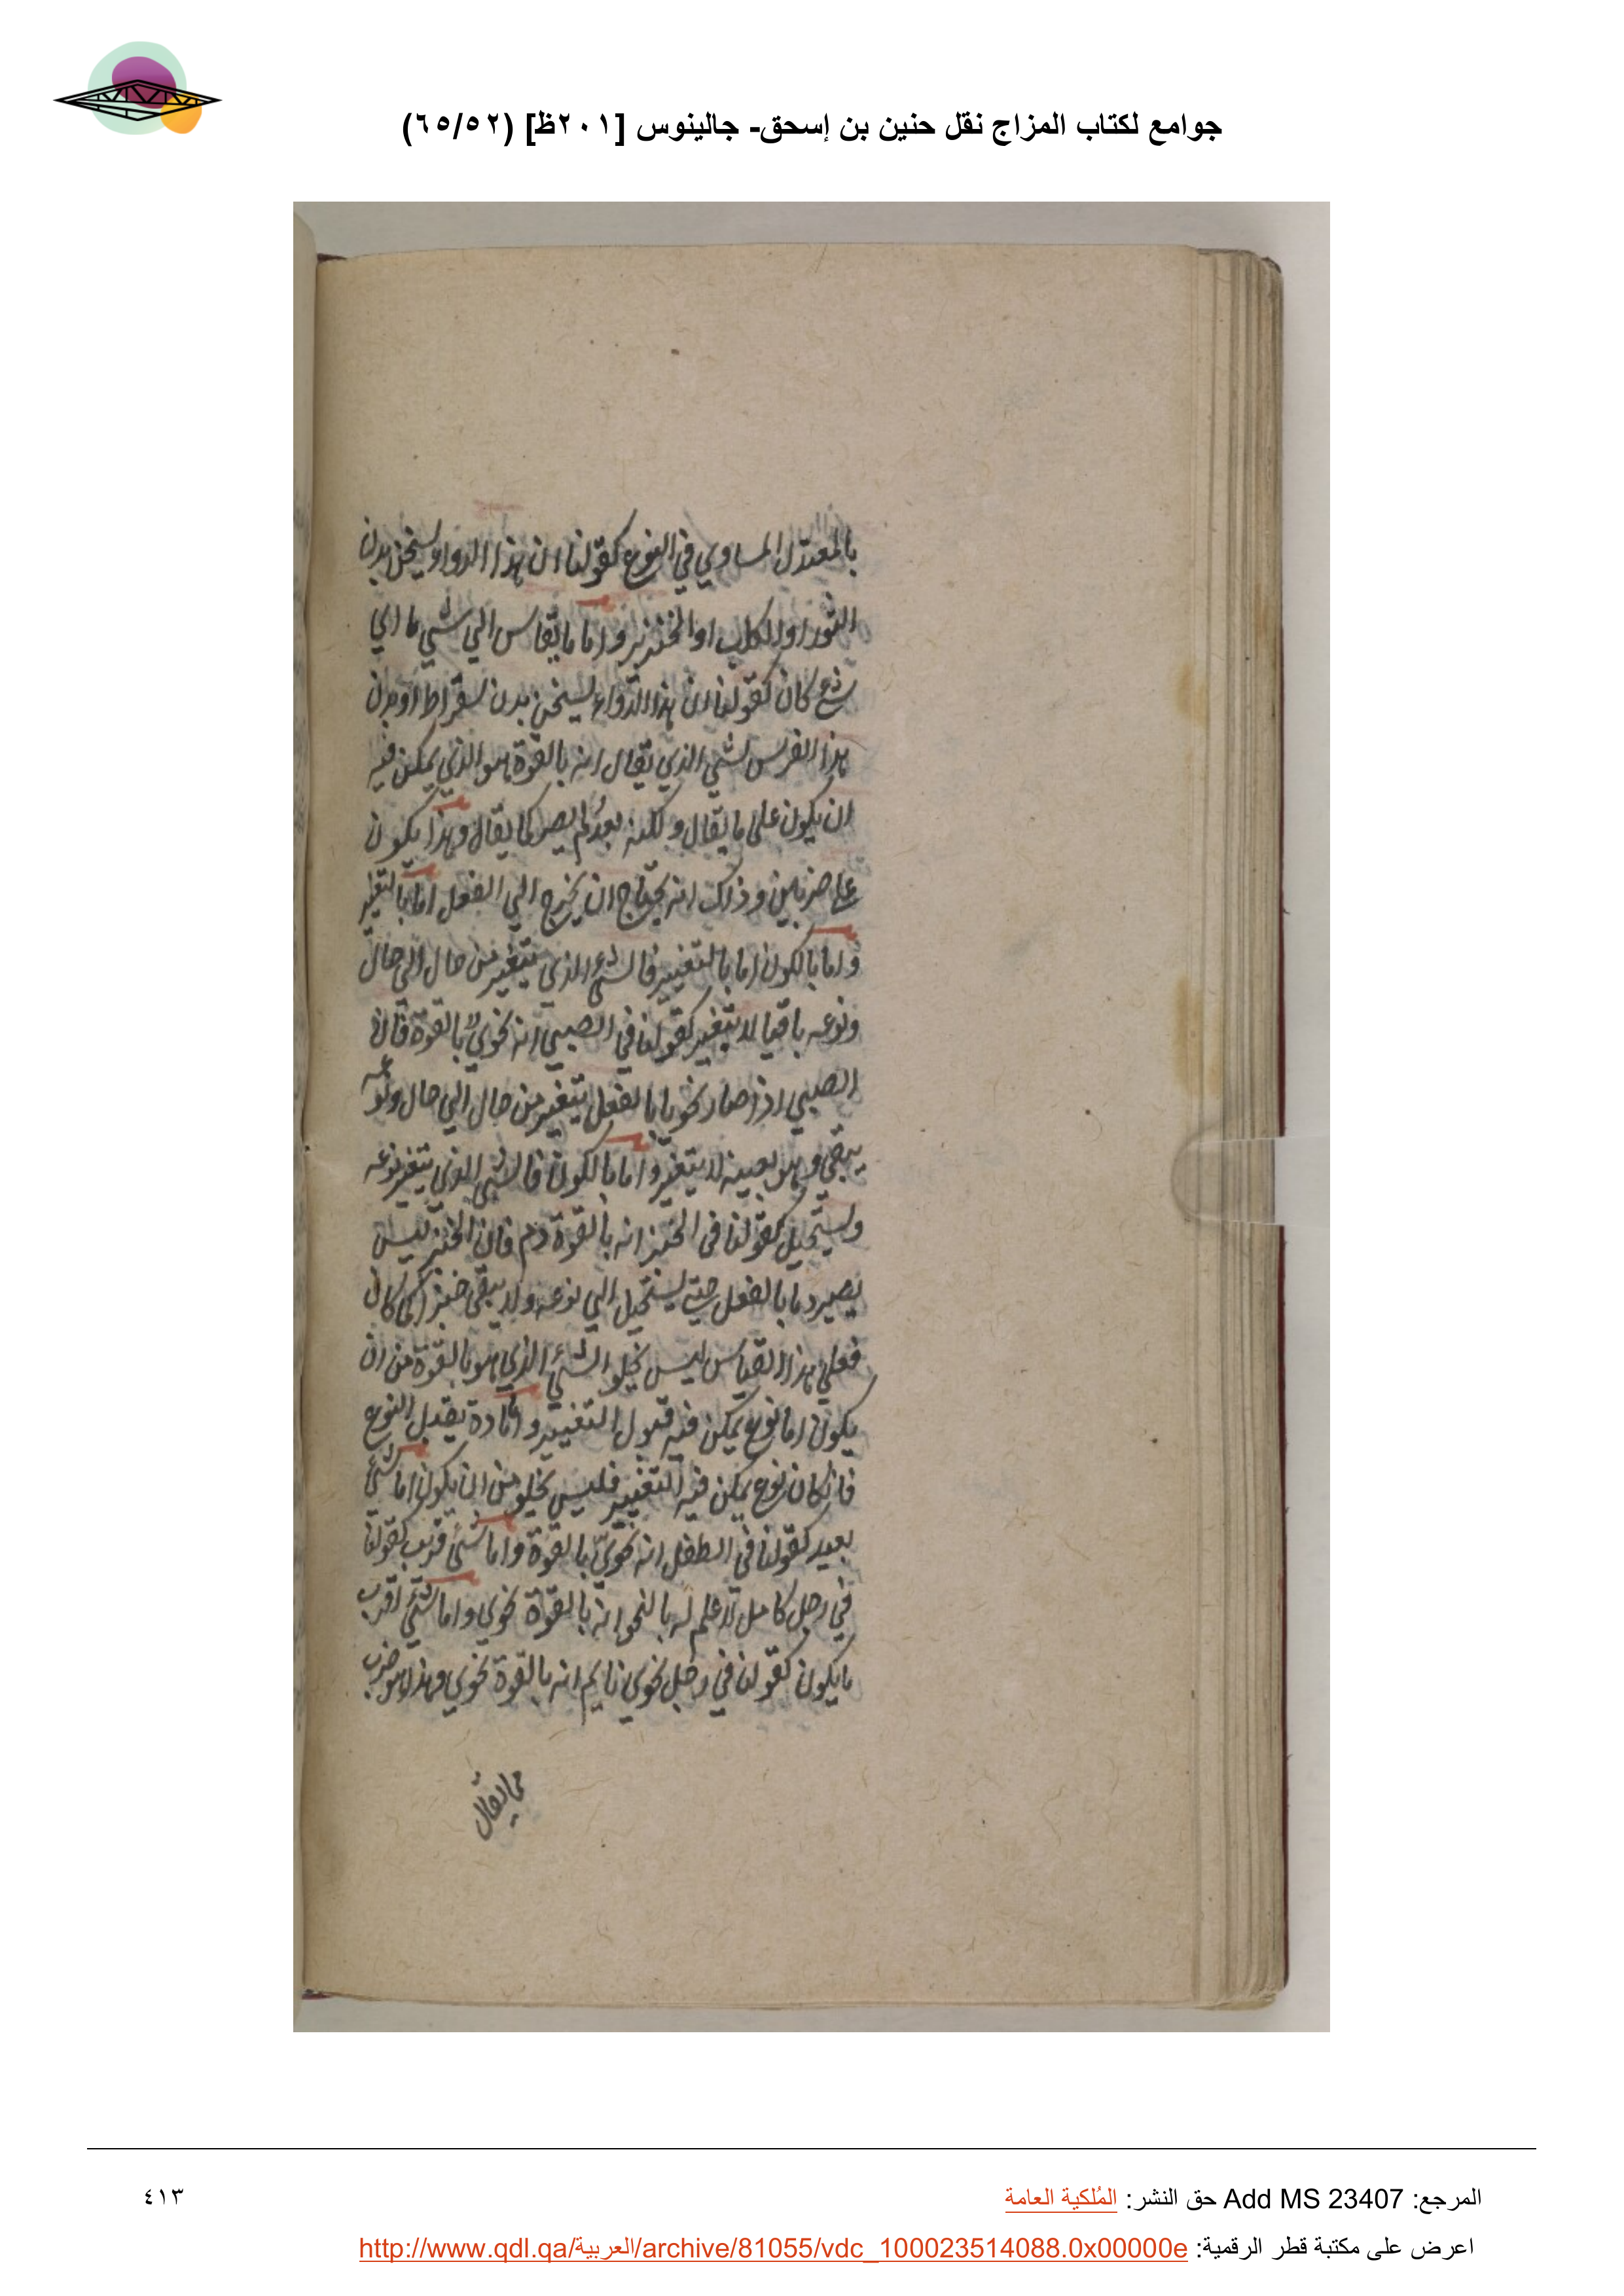 جوامع لكتاب المزاج نقل حنين بن إسحق- جالينوس [٢٠١ظ] (٦٥/٥٢)
بالمعتدل المساوي في النوع كقولنا ان هذا الدواء يسخن بدن
الثور او الكلب او الخنزير واما ما يقاس الي شي ما اي
شئ كان كقولنا ان هذا الدواء يسخن بدن سقراط او بدن
هذا الفرس الشي الذي يقال انه بالقوة هو الذي يمكن فيه
ان يكون علي ما يقال ولكنه بعد لم يصر كما يقال وهذا يكون
علي ضربين وذلك انه يحتاج ان يخرج الي الفعل اما بالتغير
واما بالكون اما بالتغيير فالشئ الذي يتغير من حال الي حال
ونوعه باقيا لا يتغير كقولنا في الصبي انه نحوي بالقوة فان
الصبي اذا صار نحويا بالفعل يتغير من حال الي حال ونوعه
يبقي وهو بعينه لا يتغير واما بالكون فالشي الذي يتغير نوعه
ويستحيل كقولنا في الخبز انه بالقوة دم فان الخبز ليس
يصير دما بالفعل حتي يستحيل الي نوعه ولا يبقي خبزا كما كان
فعلي هذا القياس ليس يخلو الشئ الذي هو بالقوة من ان
يكون اما نوع يمكن فيه قبول التغيير واما مادة يقبل النوع
فان كان نوع يمكن فيه التغيير فليس يخلو من ان يكون اما شئ
بعيد كقولنا في الطفل انه نحوي بالقوة واما شئ قريب كقولنا
في رجل كامل لا علم له بالنحو انه بالقوة نحوي واما شئ اقرب
ما يكون كقولنا في رجل نحوي نايم انه بالقوة نحوي وهذا هو ضرب
مما يقال
المرجع: Add MS 23407 حق النشر: المُلكية العامة
٤١٣
اعرض على مكتبة قطر الرقمية: http://www.qdl.qa/العربية/archive/81055/vdc_100023514088.0x00000e